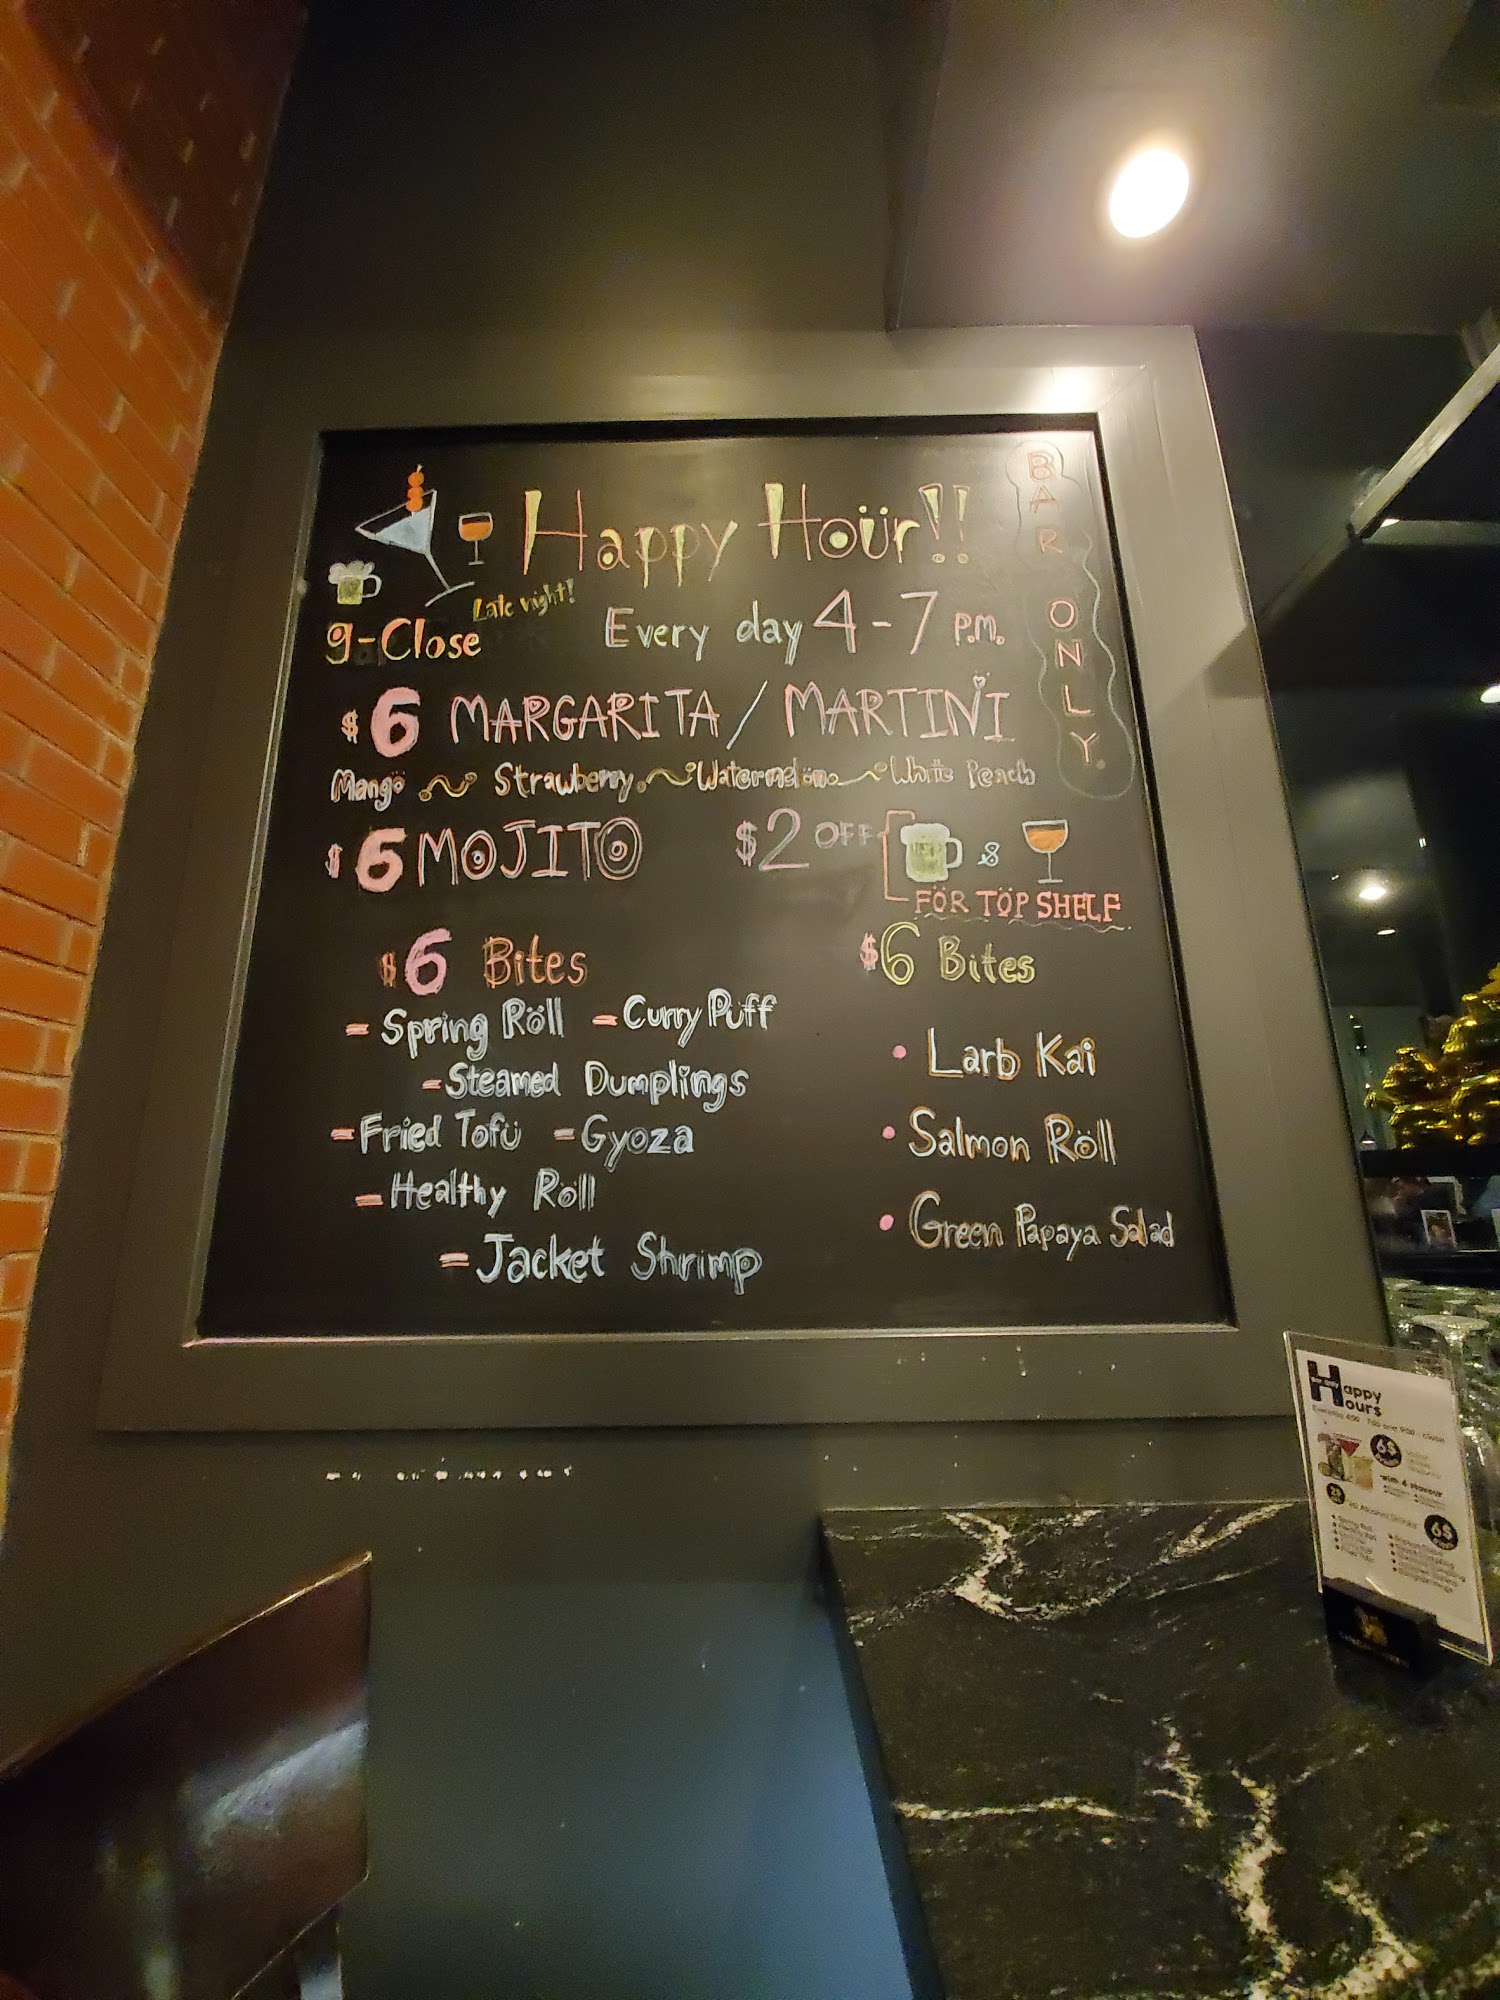 Happy Hour!!
BAR ONLY
Late night!
9-Close
Every day 4-7 P.M.
$6 MARGARITA / MARTINI
Mango Strawberry Watermelon White Peach
$6 MOJITO
$2 OFF &
FOR TOP SHELF
$6 Bites
- Spring Roll - Curry Puff
- Steamed Dumplings
- Fried Tofu - Gyoza
- Healthy Roll
- Jacket Shrimp
$6 Bites
• Larb Kai
• Salmon Roll
• Green Papaya Salad
Happy
Hours
6$
with 4 flavour
6$